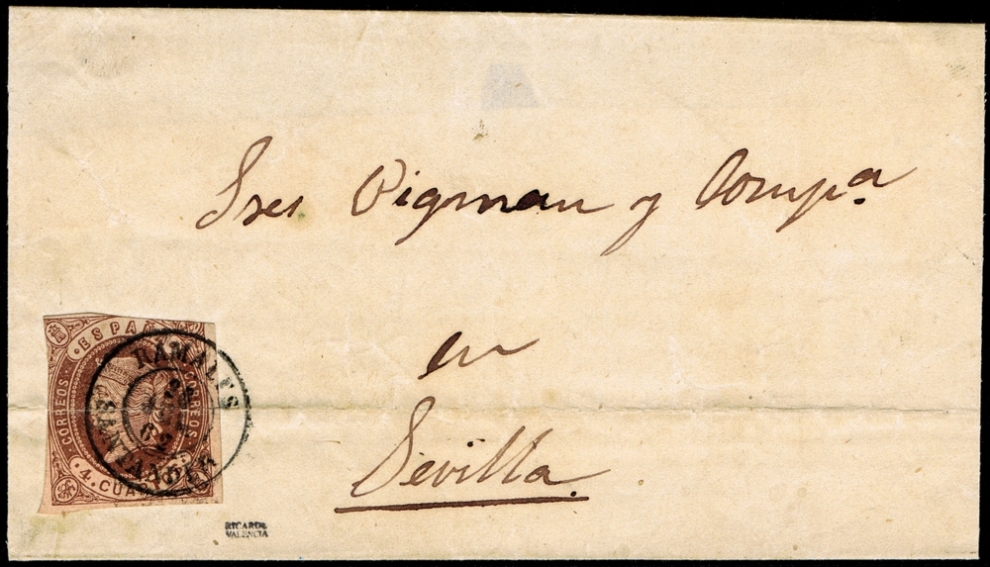 Sres Pigman y Compa.
en
Sevilla.
ESPAÑA
CORREOS
CORREOS
4. CUARTOS
RAMALES
SANTANDER
62
RICARDO
VALENCIA